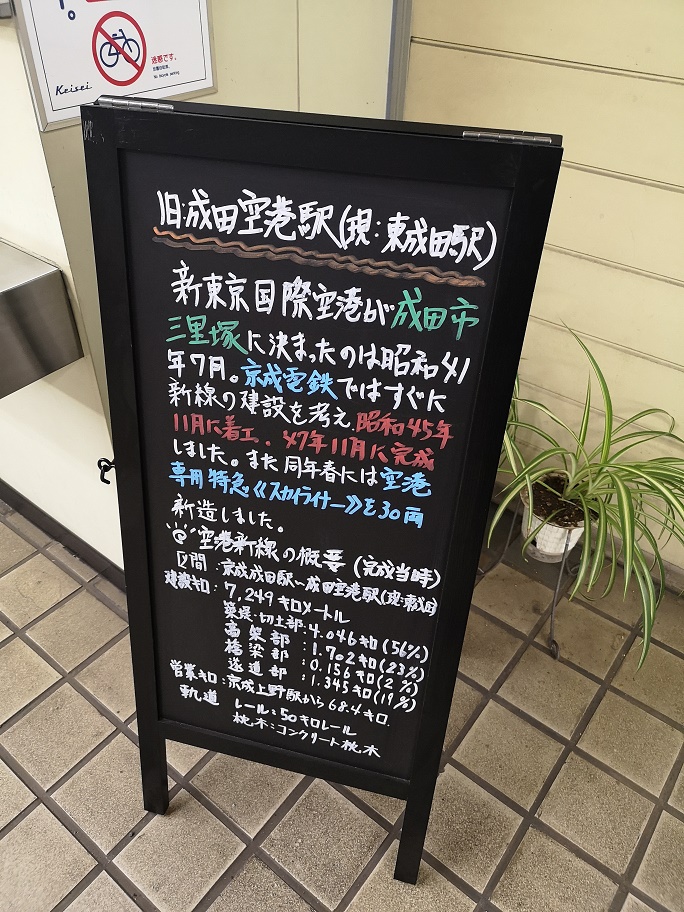 迷惑です。
Keisei
旧:成田空港駅(現:東成田駅)
新東京国際空港が成田市
三里塚に決まったのは昭和41
年7月。京成電鉄ではすぐに
新線の建設を考え、昭和45年
11月に着工、47年11月に完成
しました。また同年春には空港
専用特急《スカイライナー》を30両
新造しました。
空港新線の概要(完成当時)
区間:京成成田駅〜成田空港駅(現:東成田)
建設キロ:7,249キロメートル
築堤・切土部:4.046キロ(56%)
高架部:1.702キロ(23%)
橋梁部:0.156キロ(2%)
隧道部:1.345キロ(19%)
営業キロ:京成上野駅から68.4キロ
軌道 レール:50キロレール
枕木:コンクリート枕木